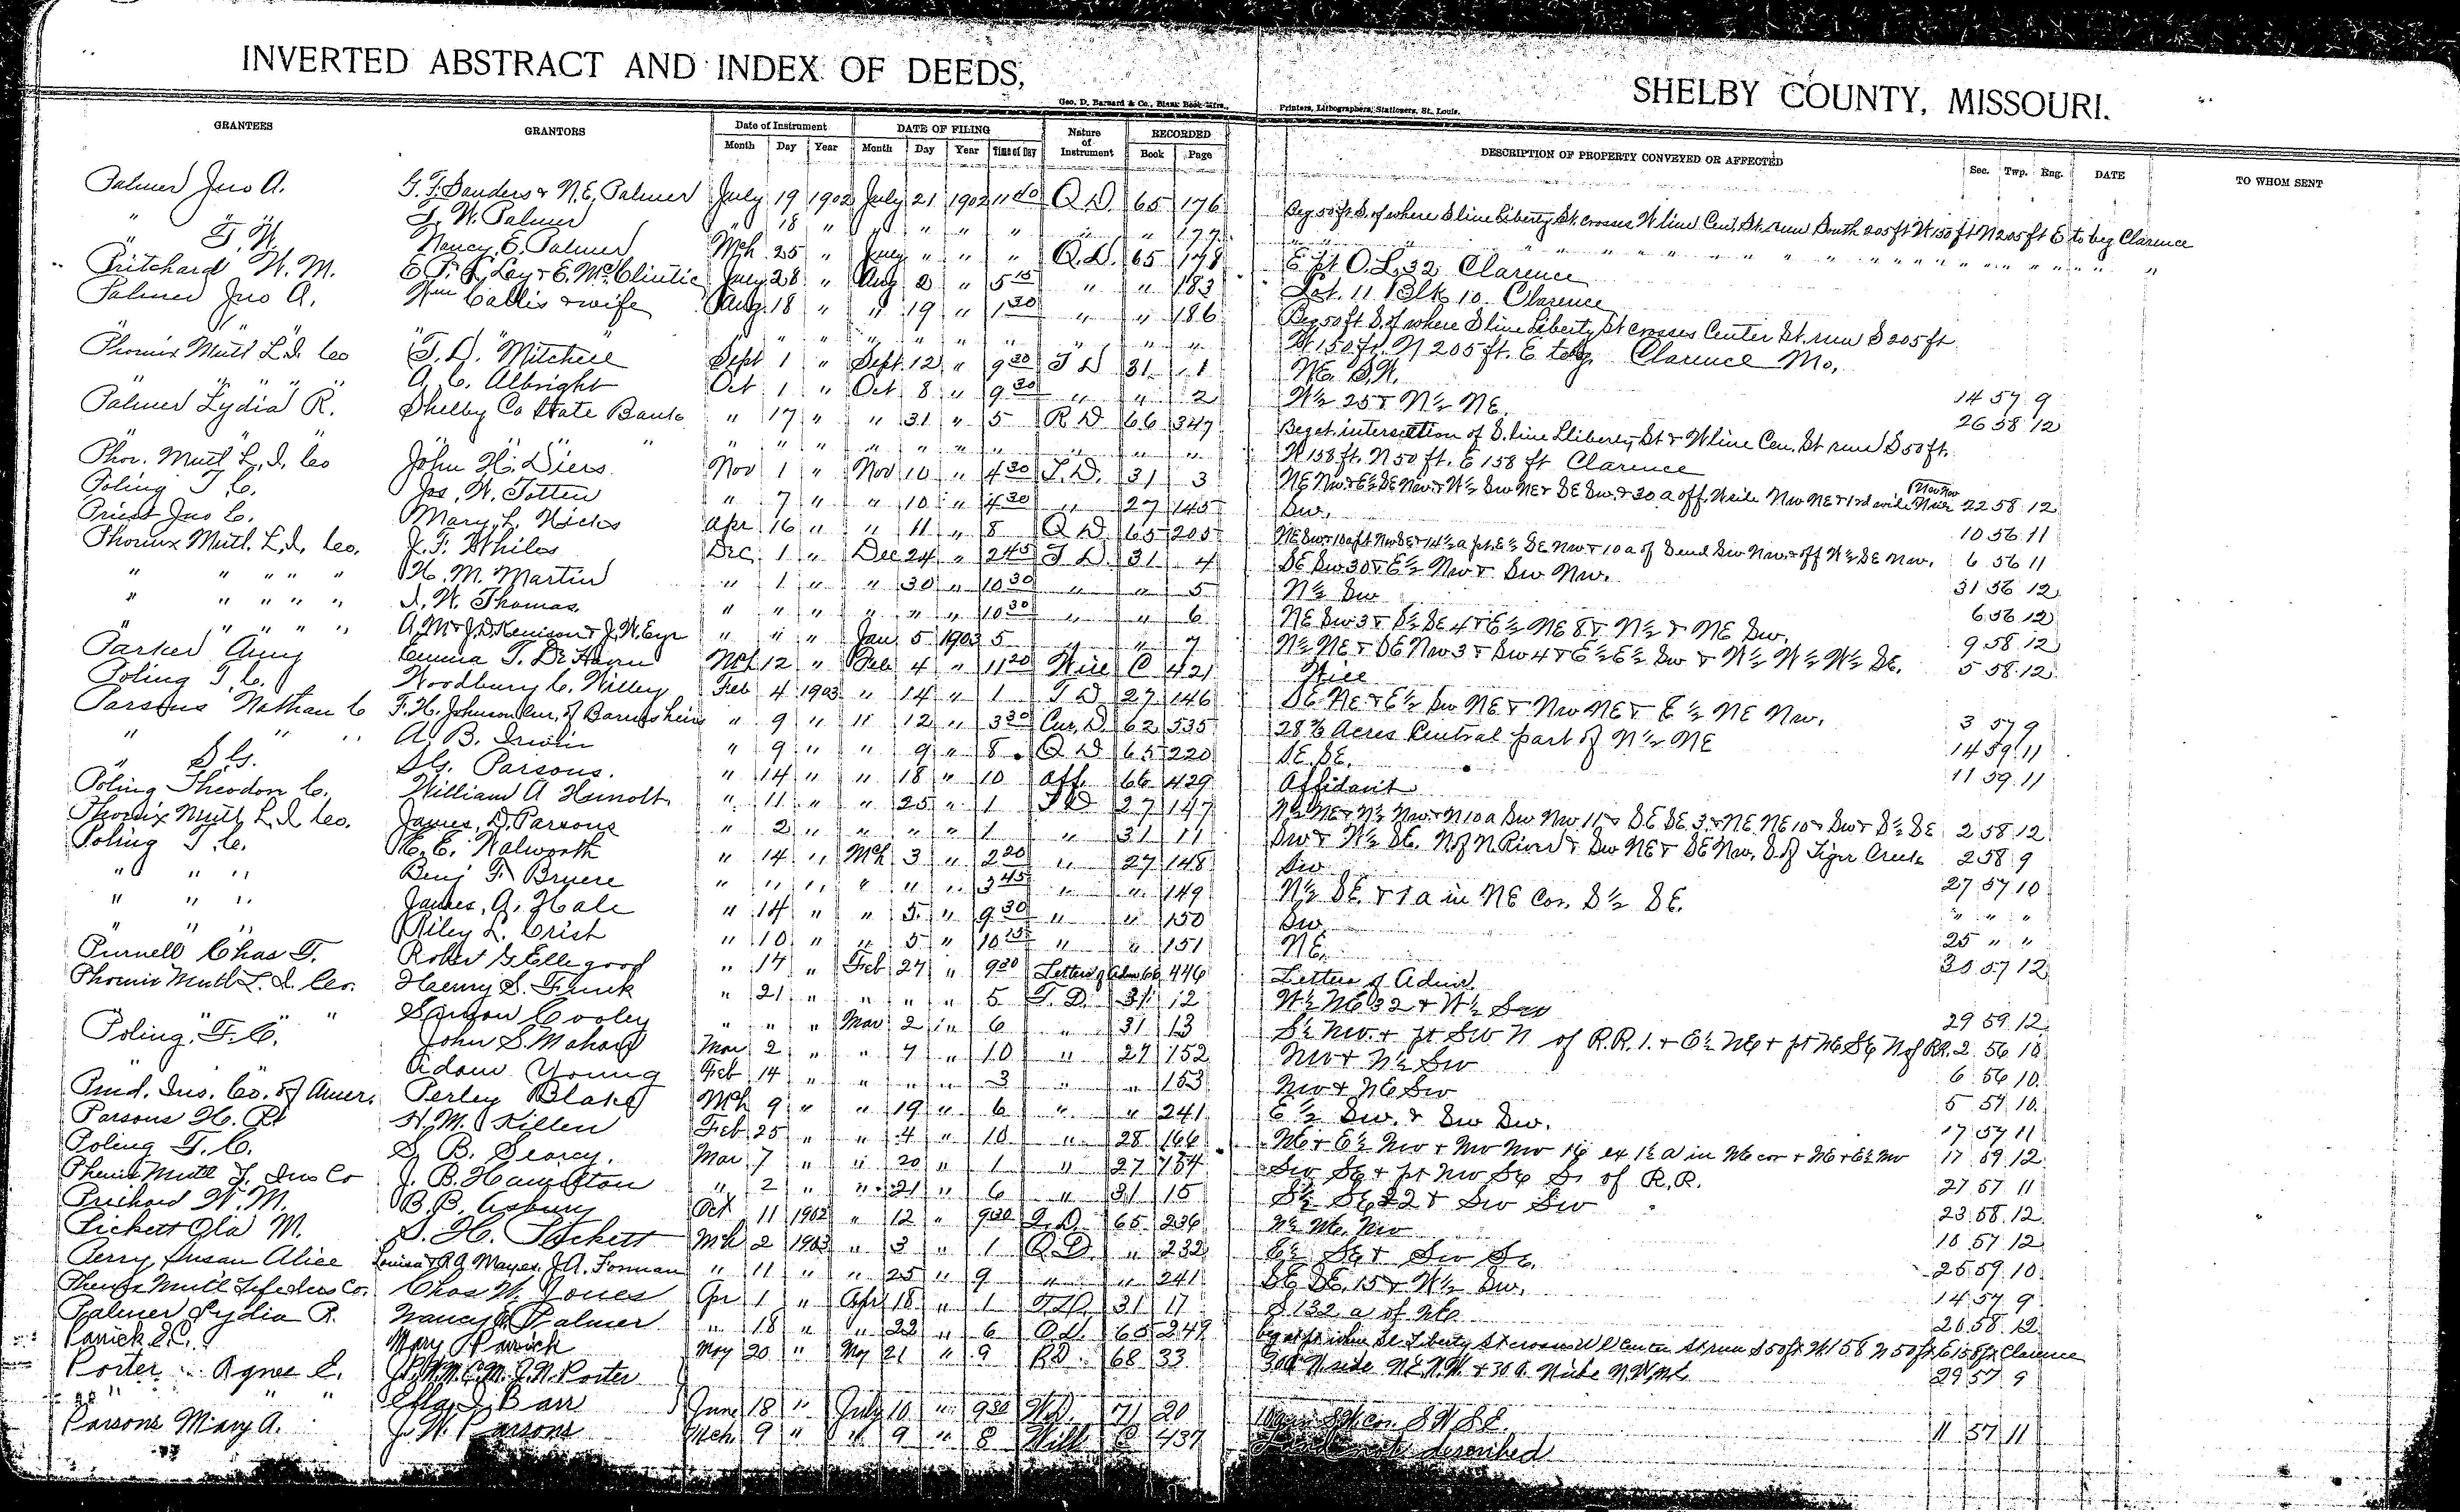 INVERTED ABSTRACT AND INDEX OF DEEDS, SHELBY COUNTY, MISSOURI.
Geo. D. Barnard & Co., Blank Book Mfrs., Printers, Lithographers, Stationers, St. Louis.
GRANTEES GRANTORS Date of Instrument DATE OF FILING Nature of Instrument RECORDED DESCRIPTION OF PROPERTY CONVEYED OR AFFECTED Sec. Twp. Rng. DATE TO WHOM SENT
Month Day Year Month Day Year Time of Day Book Page
Palmer Jno A. G. F. Sanders & N. E. Palmer July 19 1902 July 21 1902 Q D. 65 176 Beg 50 ft S. of where S line Liberty St. crosses W line Cen. St. run South 205 ft W 150 ft N 205 ft E to beg Clarence
" T. W. Palmer " 18 " " " " " " 177 " " "
" T. W. Nancy E. Palmer Mch 25 " July " " " Q. D. 65 178 E pt O. L. 32 Clarence
Pritchard W. M. July 28 " Aug 2 " 5 15 " " 183 Lot. 11 Blk 10 Clarence
Palmer Jno A. Wm Callis & wife Aug. 18 " " 19 " 1 30 " " 186 Beg 50 ft S. of where S line Liberty St crosses Center St. run S 205 ft
" " " " " " " " " " " W 150 ft. N 205 ft. E to beg. Clarence Mo.
Phoenix Mutl L. I. Co T. D. Mitchell Sept 1 " Sept. 12 " 9 30 T D 31 1 NE. S.W. 14 57 9
" " " " A. C. Albright Oct 1 " Oct 8 " 9 30 " " 2 W½ 25 & N½ NE. 26 58 12
Palmer Lydia R. Shelby Co State Bank " 17 " " 31 " 5 R D 66 347 Beg at intersection of S. line Liberty St & W line Cen. St run S 50 ft.
" " " " " " " " " " " W 158 ft. N 50 ft. E 158 ft Clarence
Phoe. Mutl L. I. Co John H. Diers Nov 1 " Nov 10 " 4 30 T. D. 31 3 22 58 12
Poling T. C. Jos. W. Totten " 7 " " 10 " 4 30 " 27 145 Sw. 10 56 11
Priest Jno C. Mary L. Hicks Apr 16 " " 11 " 8 Q D 65 205 6 56 11
Phoenix Mutl. L. I. Co. J. F. Whiles Dec. 1 " Dec 24 " 2 45 T D. 31 4 SE Sw 30 & E½ Nw & Sw Nw. 31 56 12
" " " " " H. M. Martin " 1 " " 30 " 10 30 " " 5 N½ Sw 6 56 12
" " " " " I. W. Thomas " " " " " " 10 30 " " 6 NE Sw 3 & S½ SE 4 & E½ NE 8 & N½ & NE Sw. 9 58 12
" " " " " A. M & J. D. Kenison & J. W. Eyr " " " Jan 5 1903 5 " " 7 N½ NE & SE Nw 3 & Sw 4 & E½ E½ Sw & W½ W½ W½ SE. 5 58 12
Parker Amy Emma T. De Haven Mch 12 " Feb 4 " 11 20 Will C 421 Will
Poling T. C. Woodbury C. Willey Feb 4 1903 " 14 " 1 T D 27 146 SE NE & E½ Sw NE & Nw NE & E½ NE Nw. 3 57 9
Parsons Nathan C F. H. Johnson Cur. of Barnes heirs " 9 " " 12 " 3 30 Cur. D. 62 535 Acres Central part of N½ NE 14 59 11
" " " A. B. Irwin " 9 " " 9 " 8 Q D 65 220 SE. SE. 11 59 11
" S. G. S. G. Parsons. " 14 " " 18 " 10 Aff. 66 429 Affidavit
Poling Theodore C. William A " 11 " " 25 " 1 T D 27 147 N½ NE & N½ Nw & N 10 a Sw Nw 11 & SE SE 3 & NE NE 10 & Sw & S½ SE 2 58 12
Phoenix Mutl L. I. Co. James D. Parsons " 2 " " " " 1 " 31 11 Sw & W½ SE. N of N River & Sw NE & SE Nw. S of Tiger Creek 2 58 9
Poling T. C. E. E. Walworth " 14 " Mch 3 " 2 20 " 27 148 Sw 27 57 10
" " " Benj F. Bryere " " " " " " 3 45 " " 149 N½ SE & 1 a in NE Cor. S½ SE. " " "
" " " James A. Hale " 14 " " 5 " 9 30 " " 150 Sw 25 " "
" " " Riley L. Crist " 10 " " 5 " 10 15 " " 151 NE. 30 57 12
Purnell Chas T. Robert G Ellegood " 17 " Feb 27 " 9 30 Letters of Adm 66 446 Letters of Admr.
Phoenix Mutl L. I. Co. Henry S. Funk " 21 " " " " 5 T. D. 31 12 W½ NE 32 & W½ Sw 29 59 12
" " Simon Cooley " " " Mar 2 " 6 " 31 13 S½ Nw. & pt Sw N of R.R. 1. & E½ NE & pt NE SE N of RR. 2 56 10
Poling T. C. John S. Mahan Mar 2 " " 7 " 10 " 27 152 Nw & N½ Sw 6 56 10
" Adam Young Feb 14 " " " " 3 " " 153 Nw & NE Sw 5 57 10
Prud. Ins. Co. of Amer. Perley Blake Mch 9 " " 19 " 6 " " 241 E½ Sw. & Sw Sw. 17 57 11
Parsons H. R. H. M. Killen Feb 25 " " 4 " 10 " 28 166 NE & E½ Nw & Nw Nw 16 ex 1½ a in NE cor & NE & E½ Nw 17 59 12
Poling T. C. S. B. Searcy. Mar 7 " " 20 " 1 " 27 154 Sw SE & pt Nw SE S. of R.R. 27 57 11
Phenix Mutl L. Ins Co J. B. Hamilton " 2 " " 21 " 6 " 31 15 S½ SE 22 & Sw Sw 23 58 12
Prichard W. M. B. B. Asbury Oct 11 1902 " 12 " 9 30 Q. D. 65 236 N½ NE. Nw 10 57 12
Pickett Ola M. S. H. Pickett Mch 2 1903 " 3 " 1 Q D. " 232 E½ SE & Sw SE. 25 59 10
Perry Susan Alice Louisa & R A Mayes J. A. Forman " 11 " " 25 " 9 " " 241 SE SE 15 & W½ Sw. 14 57 9
Phenix Mutl Life Ins Co. Chas W. Jones Apr 1 " Apr 18 " 1 T. D. 31 17 S 132 a of NE 26 58 12
Palmer Lydia R. Nancy E. Palmer " 18 " " 22 " 6 Q. D. 65 249 S 50 ft W 158 N 50 ft E 158 ft Clarence
Parrick S. C. Mary Parrick May 20 " May 21 " 9 R D. 68 33 30 a N side NE N.W. & 30 a. N side N.W. NE 29 57 9
Porter Agnes E. J. N. Porter
" " Effa J. Barr June 18 " July 10 " 9 30 W. D. 71 20 S W cor. S W S E. 11 57 11
Parsons Mary A. J. W. Parsons Mch 9 " " 9 " 8 Will C 437 Land not described